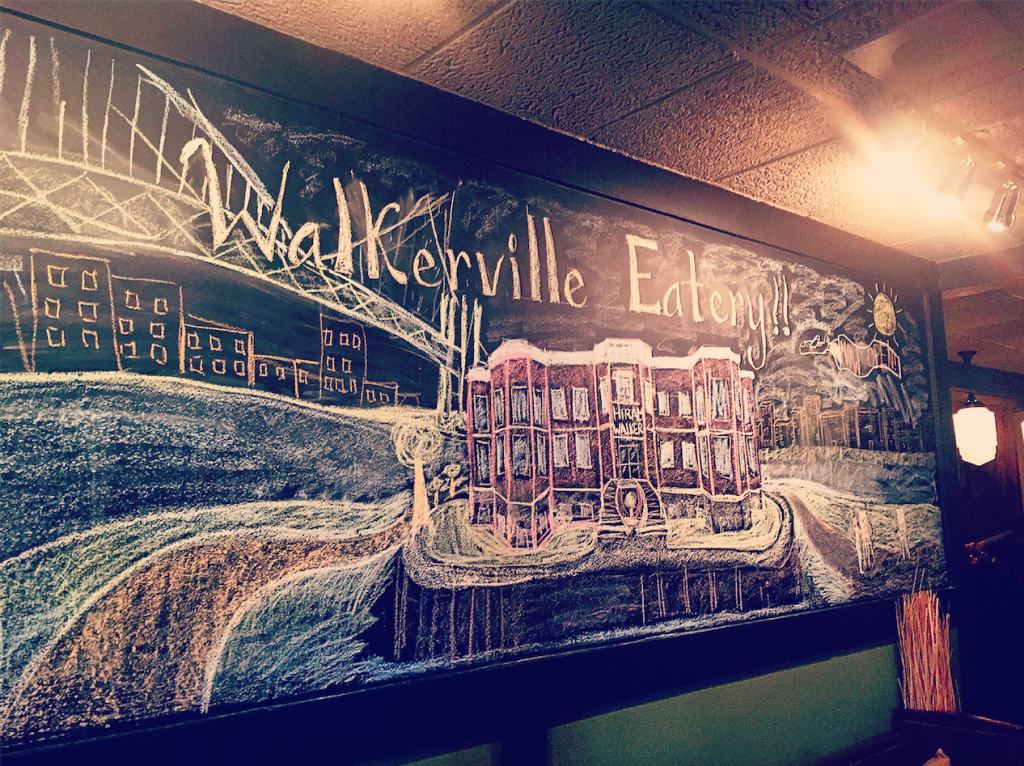 Walkerville Eatery!!
HIRAM
WALKER